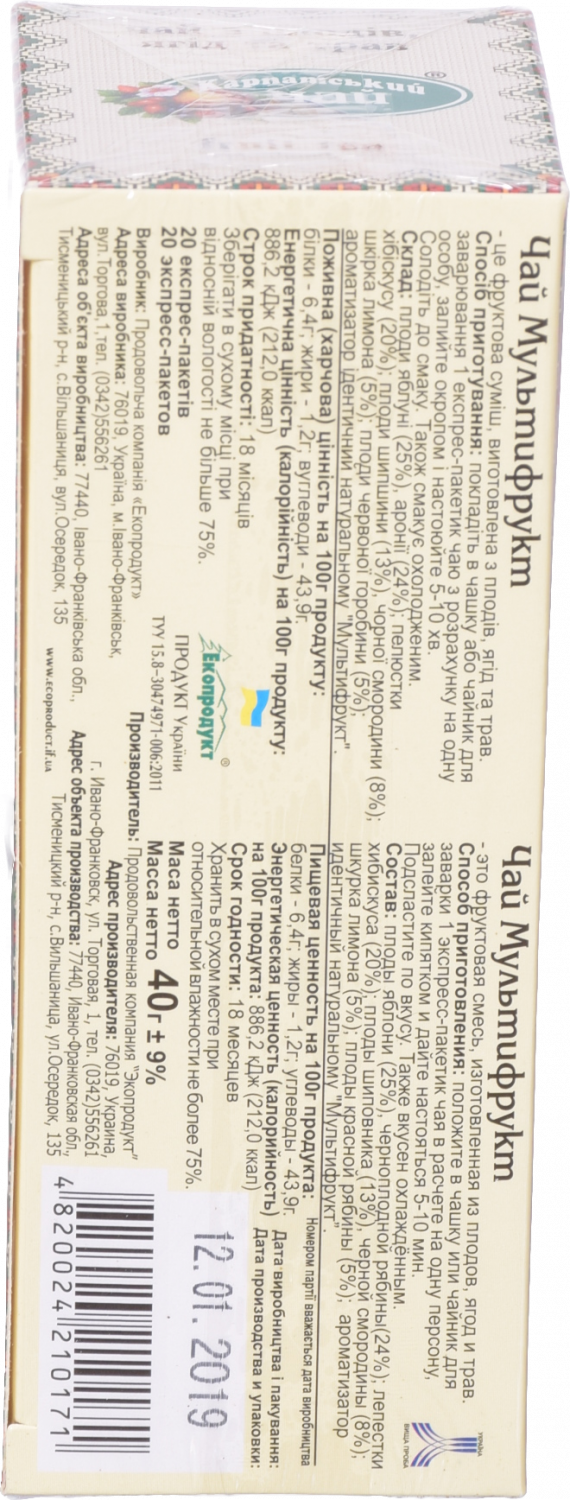 Карпатський
чай
®
Чай Мультифрукт
- це фруктова суміш, виготовлена з плодів, ягід та трав.
Спосіб приготування: покладіть в чашку або чайник для
заварювання 1 експрес-пакетик чаю з розрахунку на одну
особу, залийте окропом і настоюйте 5-10 хв.
Солодіть до смаку. Також смакує охолодженим.
Склад: плоди яблуні (25%), аронії (24%); пелюстки
хібіскусу (20%); плоди шипшини (13%), чорної смородини (8%);
шкірка лимона (5%); плоди червоної горобини (5%);
ароматизатор ідентичний натуральному "Мультифрукт".
Поживна (харчова) цінність на 100г продукту:
білки - 6,4г; жири - 1,2г; вуглеводи - 43,9г.
Енергетична цінність (калорійність) на 100г продукту:
886,2 кДж (212,0 ккал)
Строк придатності: 18 місяців
Зберігати в сухому місці при
відносній вологості не більше 75%.
20 експрес-пакетів
20 экспресс-пакетов
Виробник: Продовольча компанія «Екопродукт»
Адреса виробника: 76019, Україна, м.Івано-Франківськ,
вул.Торгова,1,тел. (0342)556261
Адреса об'єкта виробництва: 77440, Івано-Франківська обл.,
Тисменицький р-н, с.Вільшаниця, вул.Осередок, 135
Екопродукт
®
ПРОДУКТ УКРАЇНИ
ТУУ 15.8-30474971-006:2011
www.ecoproduct.if.ua
Чай Мультифрукт
- это фруктовая смесь, изготовленная из плодов, ягод и трав.
Способ приготовления: положите в чашку или чайник для
заварки 1 экспресс-пакетик чая в расчете на одну персону,
залейте кипятком и дайте настояться 5-10 мин.
Подсластите по вкусу. Также вкусен охлаждённым.
Состав: плоды яблони (25%), черноплодной рябины(24%); лепестки
хибискуса (20%); плоды шиповника (13%), черной смородины (8%);
шкурка лимона (5%); плоды красной рябины (5%); ароматизатор
идентичный натуральному "Мультифрукт".
Пищевая ценность на 100г продукта:
белки - 6,4г; жиры - 1,2г; углеводы - 43,9г.
Энергетическая ценность (калорийность)
на 100г продукта: 886,2 кДж (212,0 ккал)
Срок годности: 18 месяцев
Хранить в сухом месте при
относительной влажности не более 75%.
Маса нетто
Масса нетто 40г ± 9%
Производитель: Продовольственная компания "Экопродукт"
Адрес производителя: 76019, Украина,
г. Ивано-Франковск, ул. Торговая, 1, тел. (0342)556261
Адрес объекта производства: 77440, Ивано-Франковская обл.,
Тисменицкий р-н, с.Вильшаница, ул.Осередок, 135
Номером партії вважається дата виробництва
Дата виробництва і пакування:
Дата производства и упаковки:
12.01.2019
УКРАЇНА
ВИЩА ПРОБА
4 820024 210171